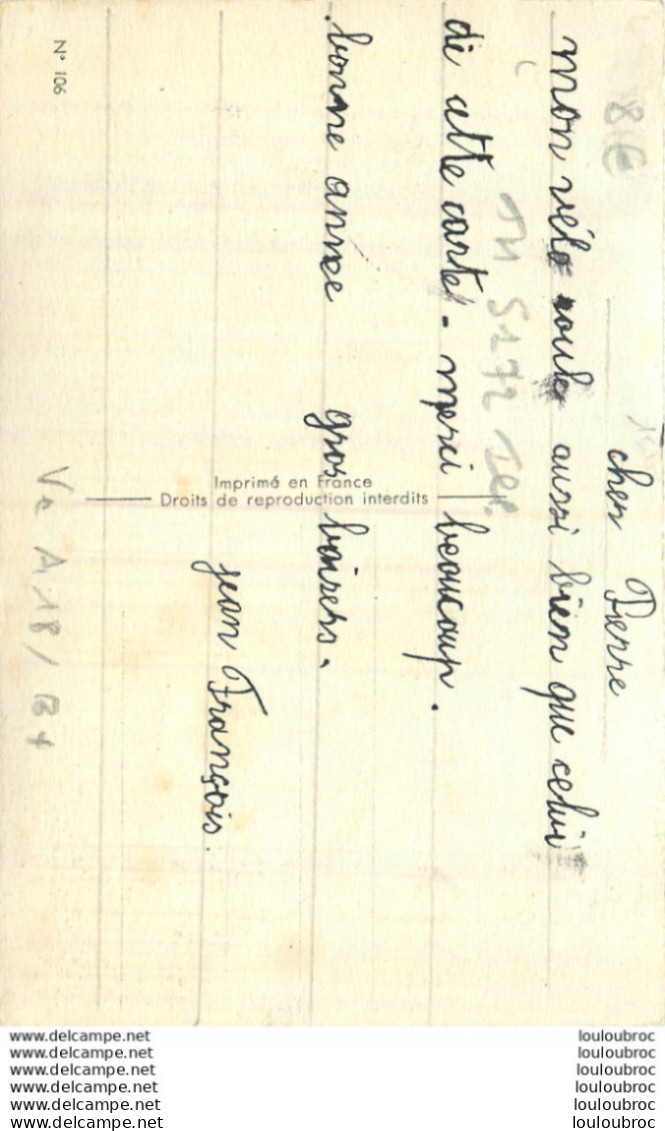 cher Pierre
mon vélo roule aussi bien que celui
de cette carte - merci beaucoup.
bonne année gros baisers.
jean François.
8€
TH 5172
Imprimé en France
Droits de reproduction interdits
N° 106
Ve A 18 /
www.delcampe.net louloubroc
www.delcampe.net louloubroc
www.delcampe.net louloubroc
www.delcampe.net louloubroc
www.delcampe.net louloubroc
www.delcampe.net louloubroc